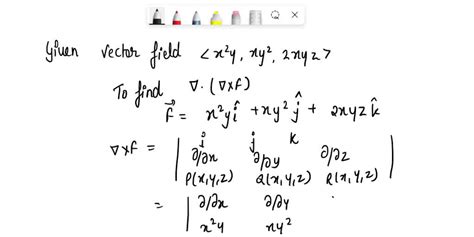 Given vector field <x²y, xy², 2xyz>
To find ∇·(∇×F)
F⃗ = x²y î + xy² ĵ + 2xyz k̂
i j k
∇×F = | ∂/∂x ∂/∂y ∂/∂z |
P(x,y,z) Q(x,y,z) R(x,y,z)
= | ∂/∂x ∂/∂y
x²y xy²